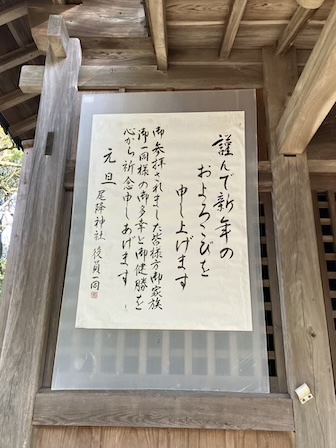 謹んで新年の
およろこびを
申し上げます
御参拝されました皆様方御家族
御一同様の御多幸と御健勝を
心から祈念申しあげます
元旦
尾降神社 役員一同